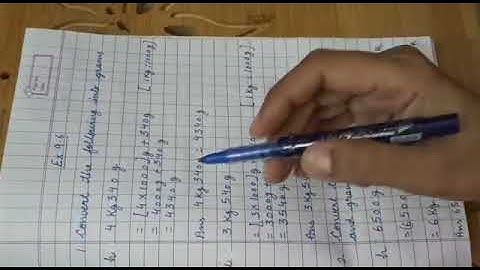 Ex 9.6
1. Convert the following into grams
i) 4 Kg 340 g [1 Kg = 1000g]
= [4 X 1000] g + 340 g
= 4000 g + 340 g
= 4340 g
Ans 4 kg 340 g = 4340 g
3 kg 540 g [1 Kg = 1000g]
= [3 X 1000] g
= 3000 g
= 3540 g
Ans 3 kg 5
2. Convert
and gram
6500 g
= 6500
= 6 Kg
Ans 65